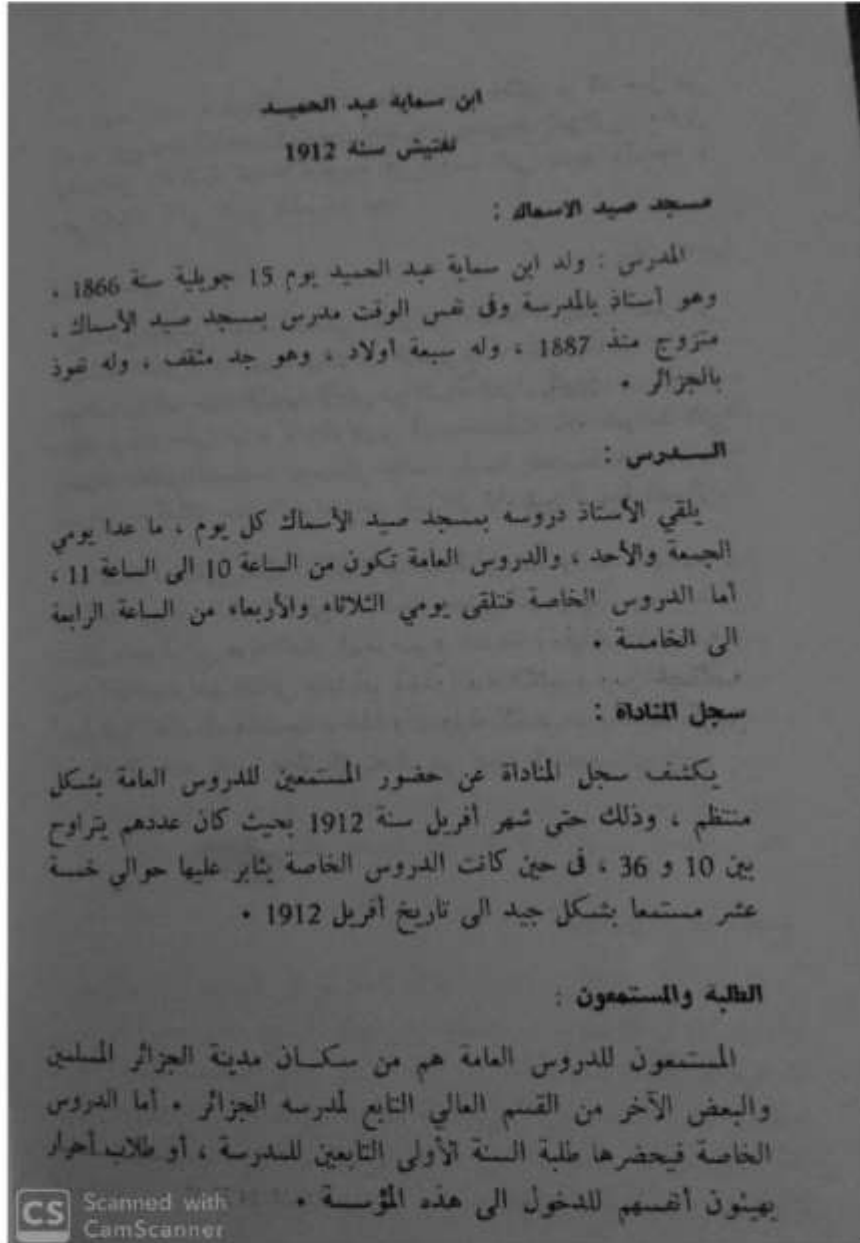 ابن سماية عبد الحميــد
تفتيش سنة 1912
مسجد صيد الاسماك :
المدرس : ولد ابن سماية عبد الحميد يوم 15 جويلية سنة 1866 ،
وهو أستاذ بالمدرسة وفى نفس الوقت مدرس بمسجد صيد الأسماك ،
متزوج منذ 1887 ، وله سبعة أولاد ، وهو جد مثقف ، وله نفوذ
بالجزائر .
الــدرس :
يلقي الأستاذ دروسه بمسجد صيد الأسماك كل يوم ، ما عدا يومي
الجمعة والأحد ، والدروس العامة تكون من الساعة 10 الى الساعة 11 ،
أما الدروس الخاصة فتلقى يومي الثلاثاء والأربعاء من الساعة الرابعة
الى الخامسة .
سجل المناداة :
يكشف سجل المناداة عن حضور المستمعين للدروس العامة بشكل
منتظم ، وذلك حتى شهر أفريل سنة 1912 بحيث كان عددهم يتراوح
بين 10 و 36 ، فى حين كانت الدروس الخاصة يثابر عليها حوالي خمسة
عشر مستمعا بشكل جيد الى تاريخ أفريل 1912 .
الطلبة والمستمعون :
المستمعون للدروس العامة هم من سكــان مدينة الجزائر المسلمين
والبعض الآخر من القسم العالي التابع لمدرسه الجزائر . أما الدروس
الخاصة فيحضرها طلبة السنة الأولى التابعين للمدرسة ، أو طلاب أحرار
يهيئون أنفسهم للدخول الى هذه المؤسسة .
CS Scanned with
CamScanner